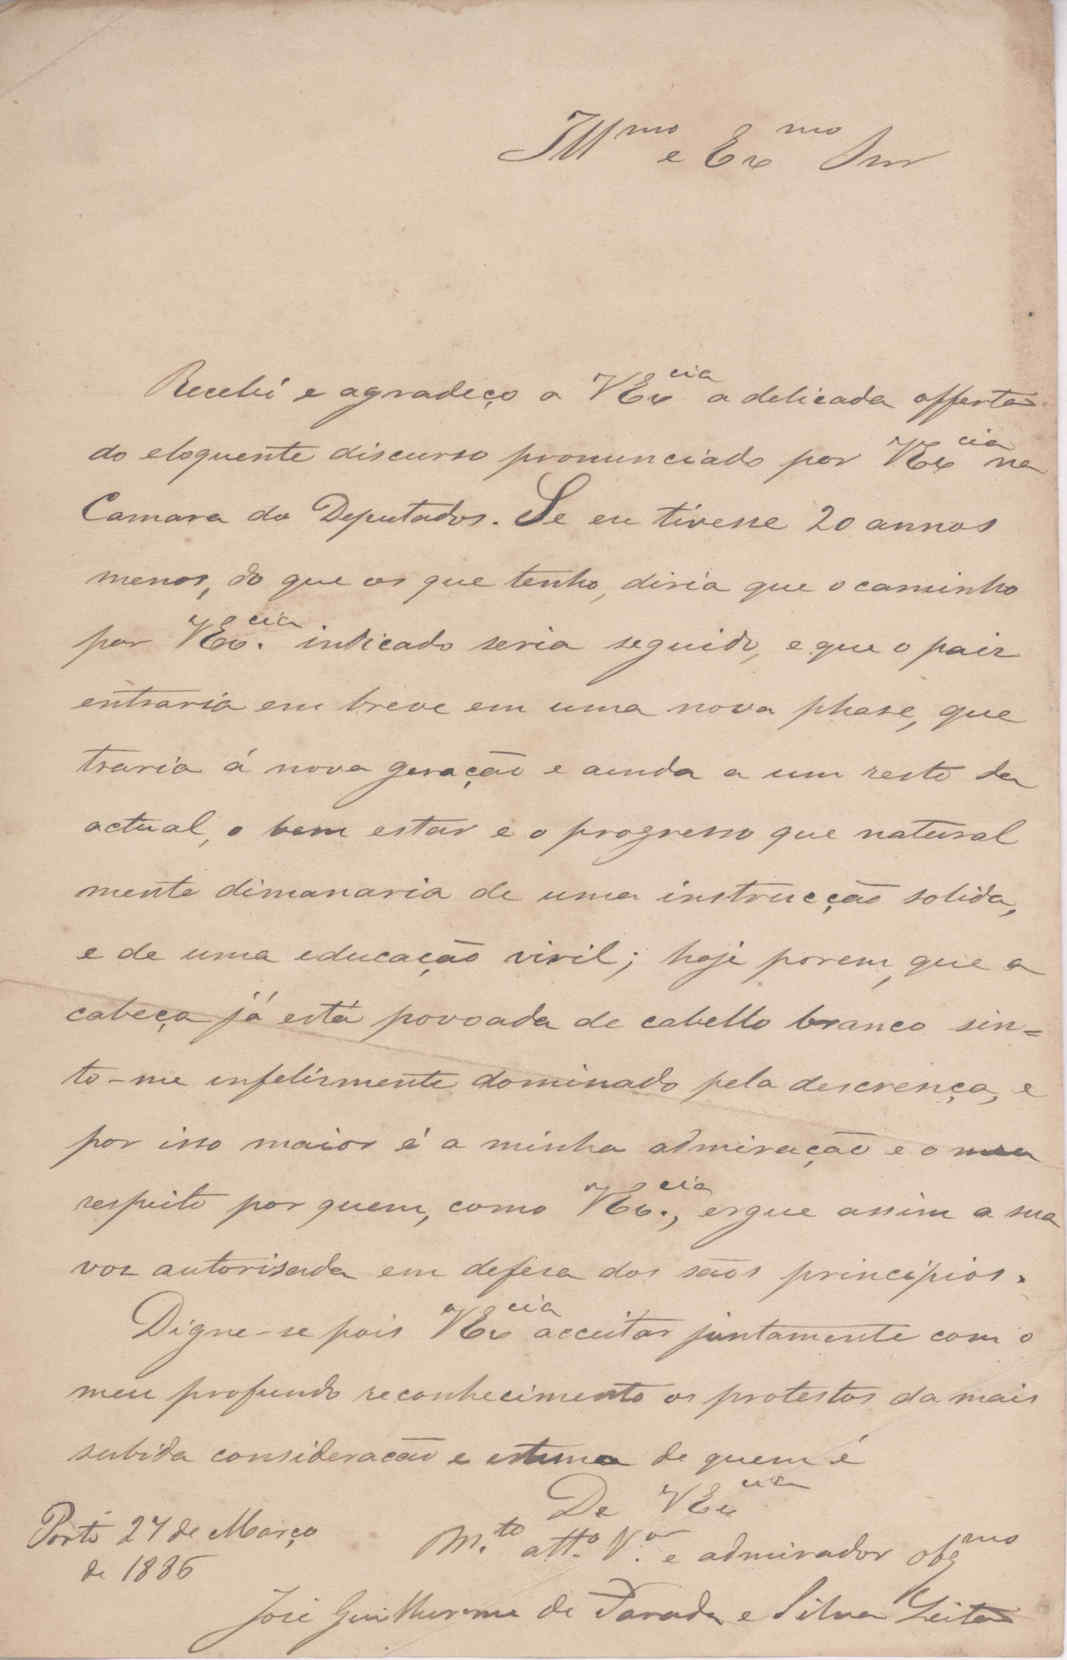 Illmo e Exmo Snr
Recebi e agradeço a VExcia a delicada offerta
do eloquente discurso pronunciado por VExcia na
Camara do Deputados. Se eu tivesse 20 annos
menos, do que os que tenho, diria que o caminho
por VEx.cia indicado seria seguido, e que o paiz
entraria em breve em uma nova phase, que
traria á nova geração e ainda a um resto da
actual, o bem estar e o progresso que natural
mente dimanaria de uma instrucção solida,
e de uma educação viril; hoje porem, que a
cabeça já está povoada de cabello branco sin=
to-me infelismente dominado pela descrença, e
por isso maior é a minha admiração e o meu
respeito por quem, como VEx.cia, ergue assim a sua
voz autorisada em defesa dos sãos principios.
Digne-se pois VExcia acceitar juntamente com o
meu profundo reconhecimento os protestos da mais
subida consideração e estima de quem é
De VExcia
M.to att.o V.or e admirador obgmo
Porto 27 de Março
de 1886
José Guilherme de Parada e Silva Leitão